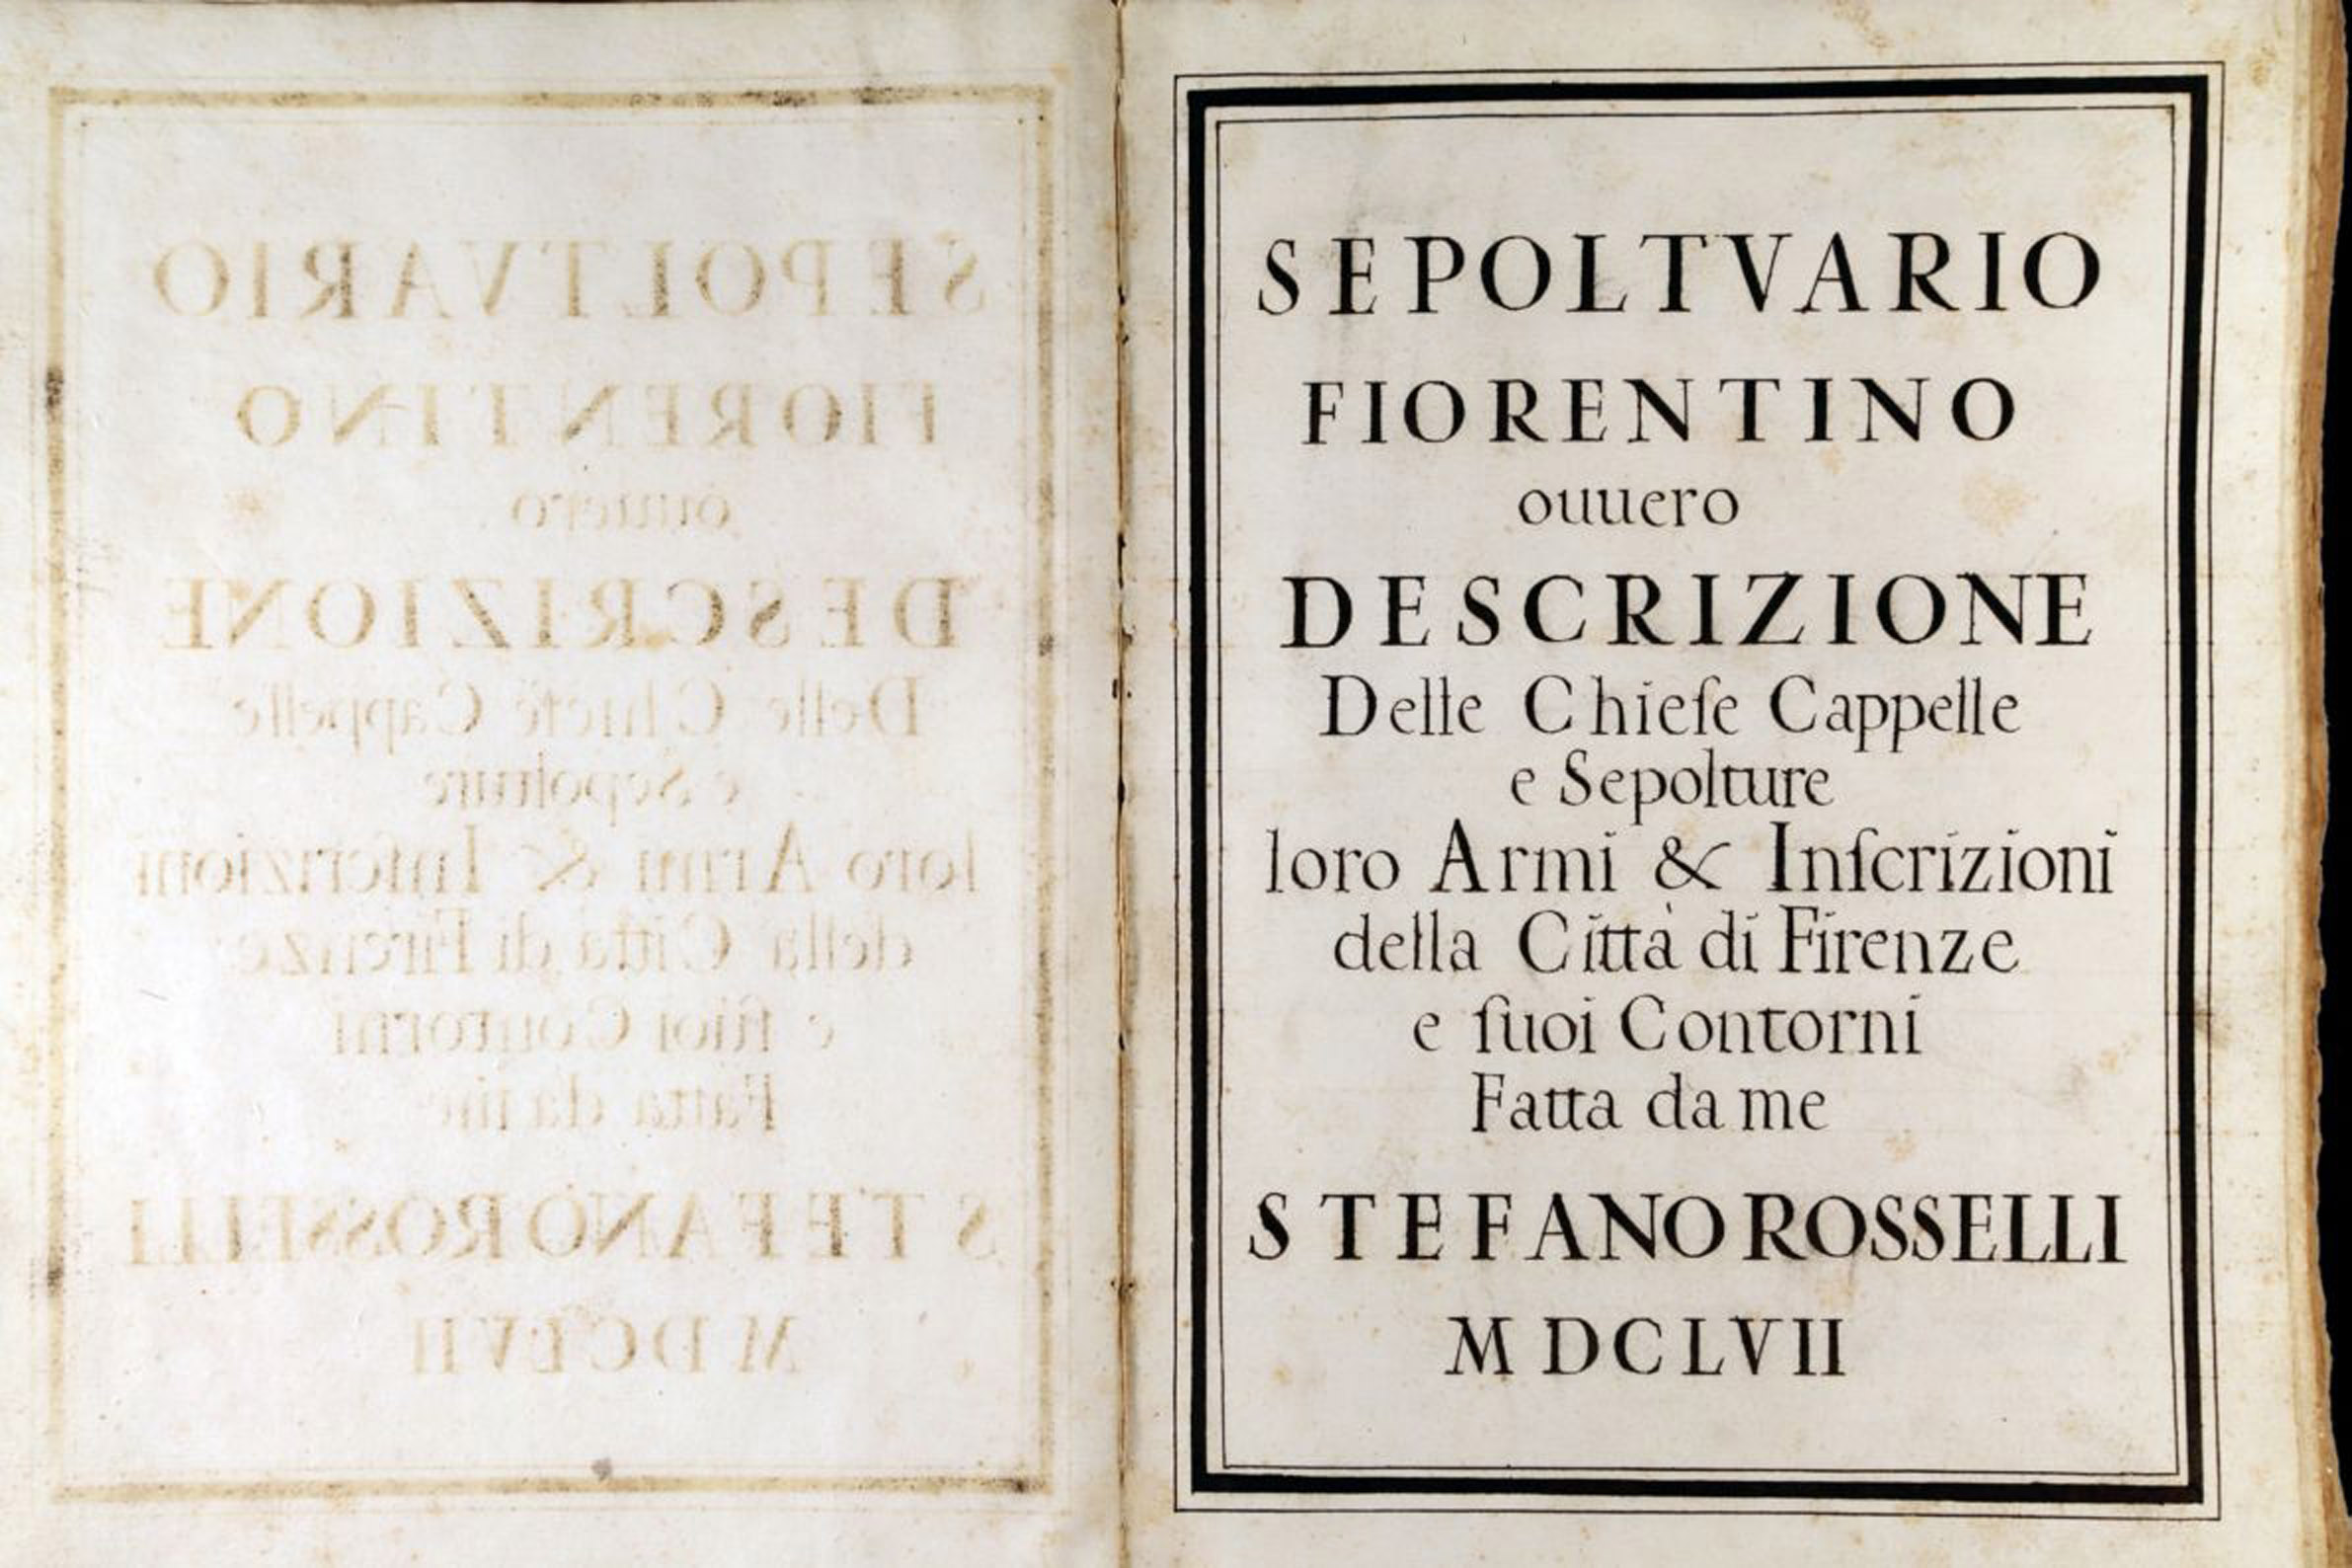 SEPOLTVARIO
FIORENTINO
ouuero
DESCRIZIONE
Delle Chieſe Cappelle
e Sepolture
loro Armi & Inſcrizioni
della Città di Firenze
e ſuoi Contorni
Fatta da me
STEFANO ROSSELLI
MDCLVII